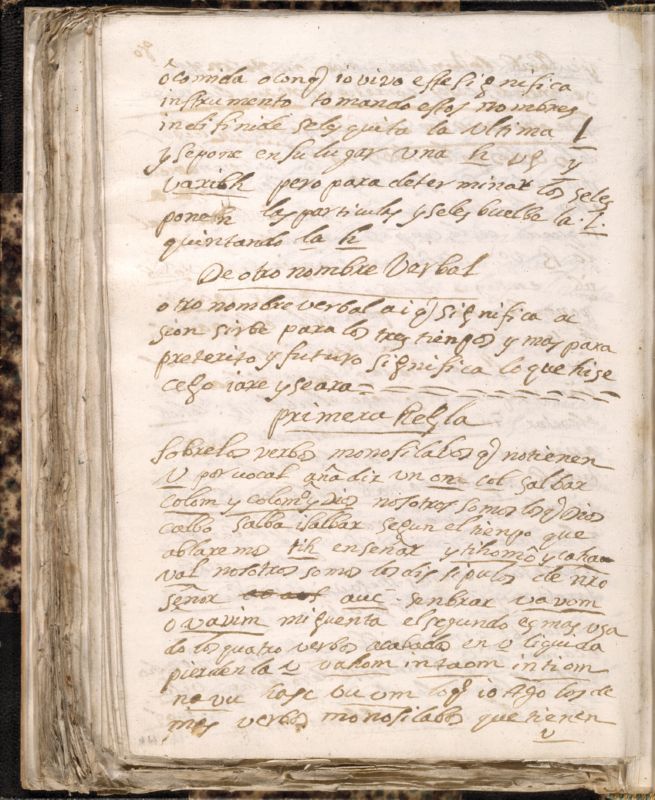 ôcomida o conq̃ io vivo este significa
instrumento tomando estos nombres
indifinide seles quita la ultima l
y se pone en su lugar una h vg y
varibh pero para determinar los seles
ponen las particulas y seles buelbe la .l.
quintando la h
De otro nombre Verbal
otro nombre verbal ai q̃ significa ac
sion sirbe para los tres tiempos y mas para
preterito y futuro significa lo que hise
cego iare y seara
primera Regla
sobre los verbos monosilabos q̃ no tienen
V por vocal añadir un om col salbar
colom y Dios nisotros somos los q̃ Dios
salba isalbar segun el tiempo que
ablaremos tih enseñar y tihom
val nosotros somos los dissipulos de nr̃o
señor auc senbrar vavom
o vavim mi quenta el segundo es mas usa
do los quatro verbos acabados en v liquida
pierden la v vahom intaom intiom
navu hase vu um loq̃ io Ago los de
mas verbos monosilabos que tienen
v